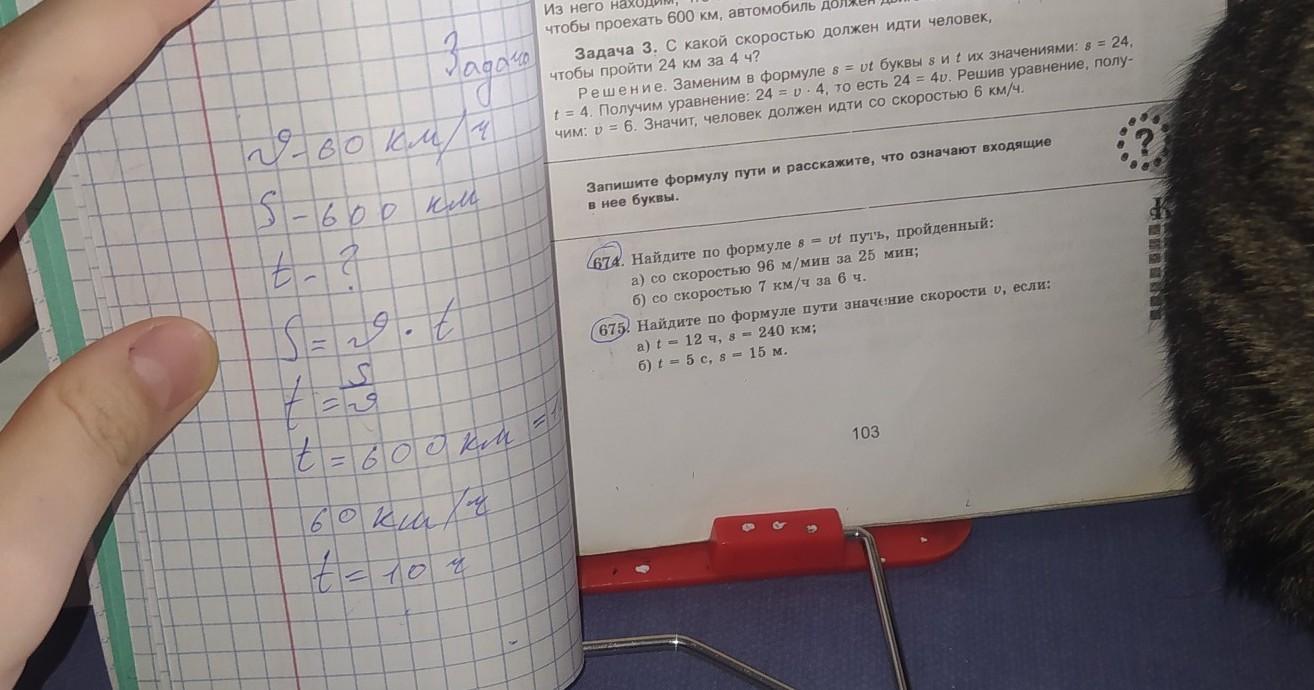 Задача
v - 60 км/ч
S - 600 км
t - ?
S = v · t
t = S/v
t = 600 км =
60 км/ч
t = 10 ч
Из него находим,
чтобы проехать 600 км, автомобиль должен
Задача 3. С какой скоростью должен идти человек,
чтобы пройти 24 км за 4 ч?
Решение. Заменим в формуле s = vt буквы s и t их значениями: s = 24,
t = 4. Получим уравнение: 24 = v · 4, то есть 24 = 4v. Решив уравнение, полу-
чим: v = 6. Значит, человек должен идти со скоростью 6 км/ч.
?
Запишите формулу пути и расскажите, что означают входящие
в нее буквы.
К
674. Найдите по формуле s = vt путь, пройденный:
а) со скоростью 96 м/мин за 25 мин;
б) со скоростью 7 км/ч за 6 ч.
675. Найдите по формуле пути значение скорости v, если:
а) t = 12 ч, s = 240 км;
б) t = 5 с, s = 15 м.
103